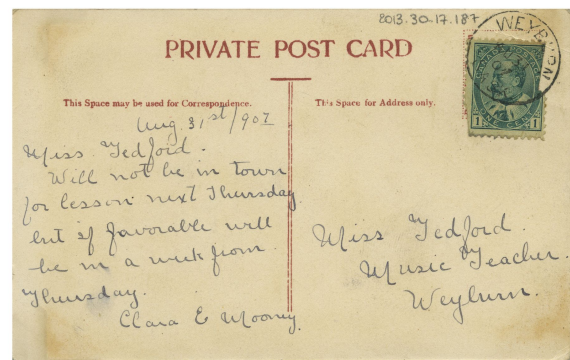 2013.30-17.187
WEYBURN
PRIVATE POST CARD
This Space may be used for Correspondence.
This Space for Address only.
Aug 31st/907
Miss Tedford.
Will not be in town
for lesson next Thursday
but if favorable will
be in a week from
Thursday.
Clara E Mooney.
Miss Tedford.
Music Teacher.
Weyburn.
1
1